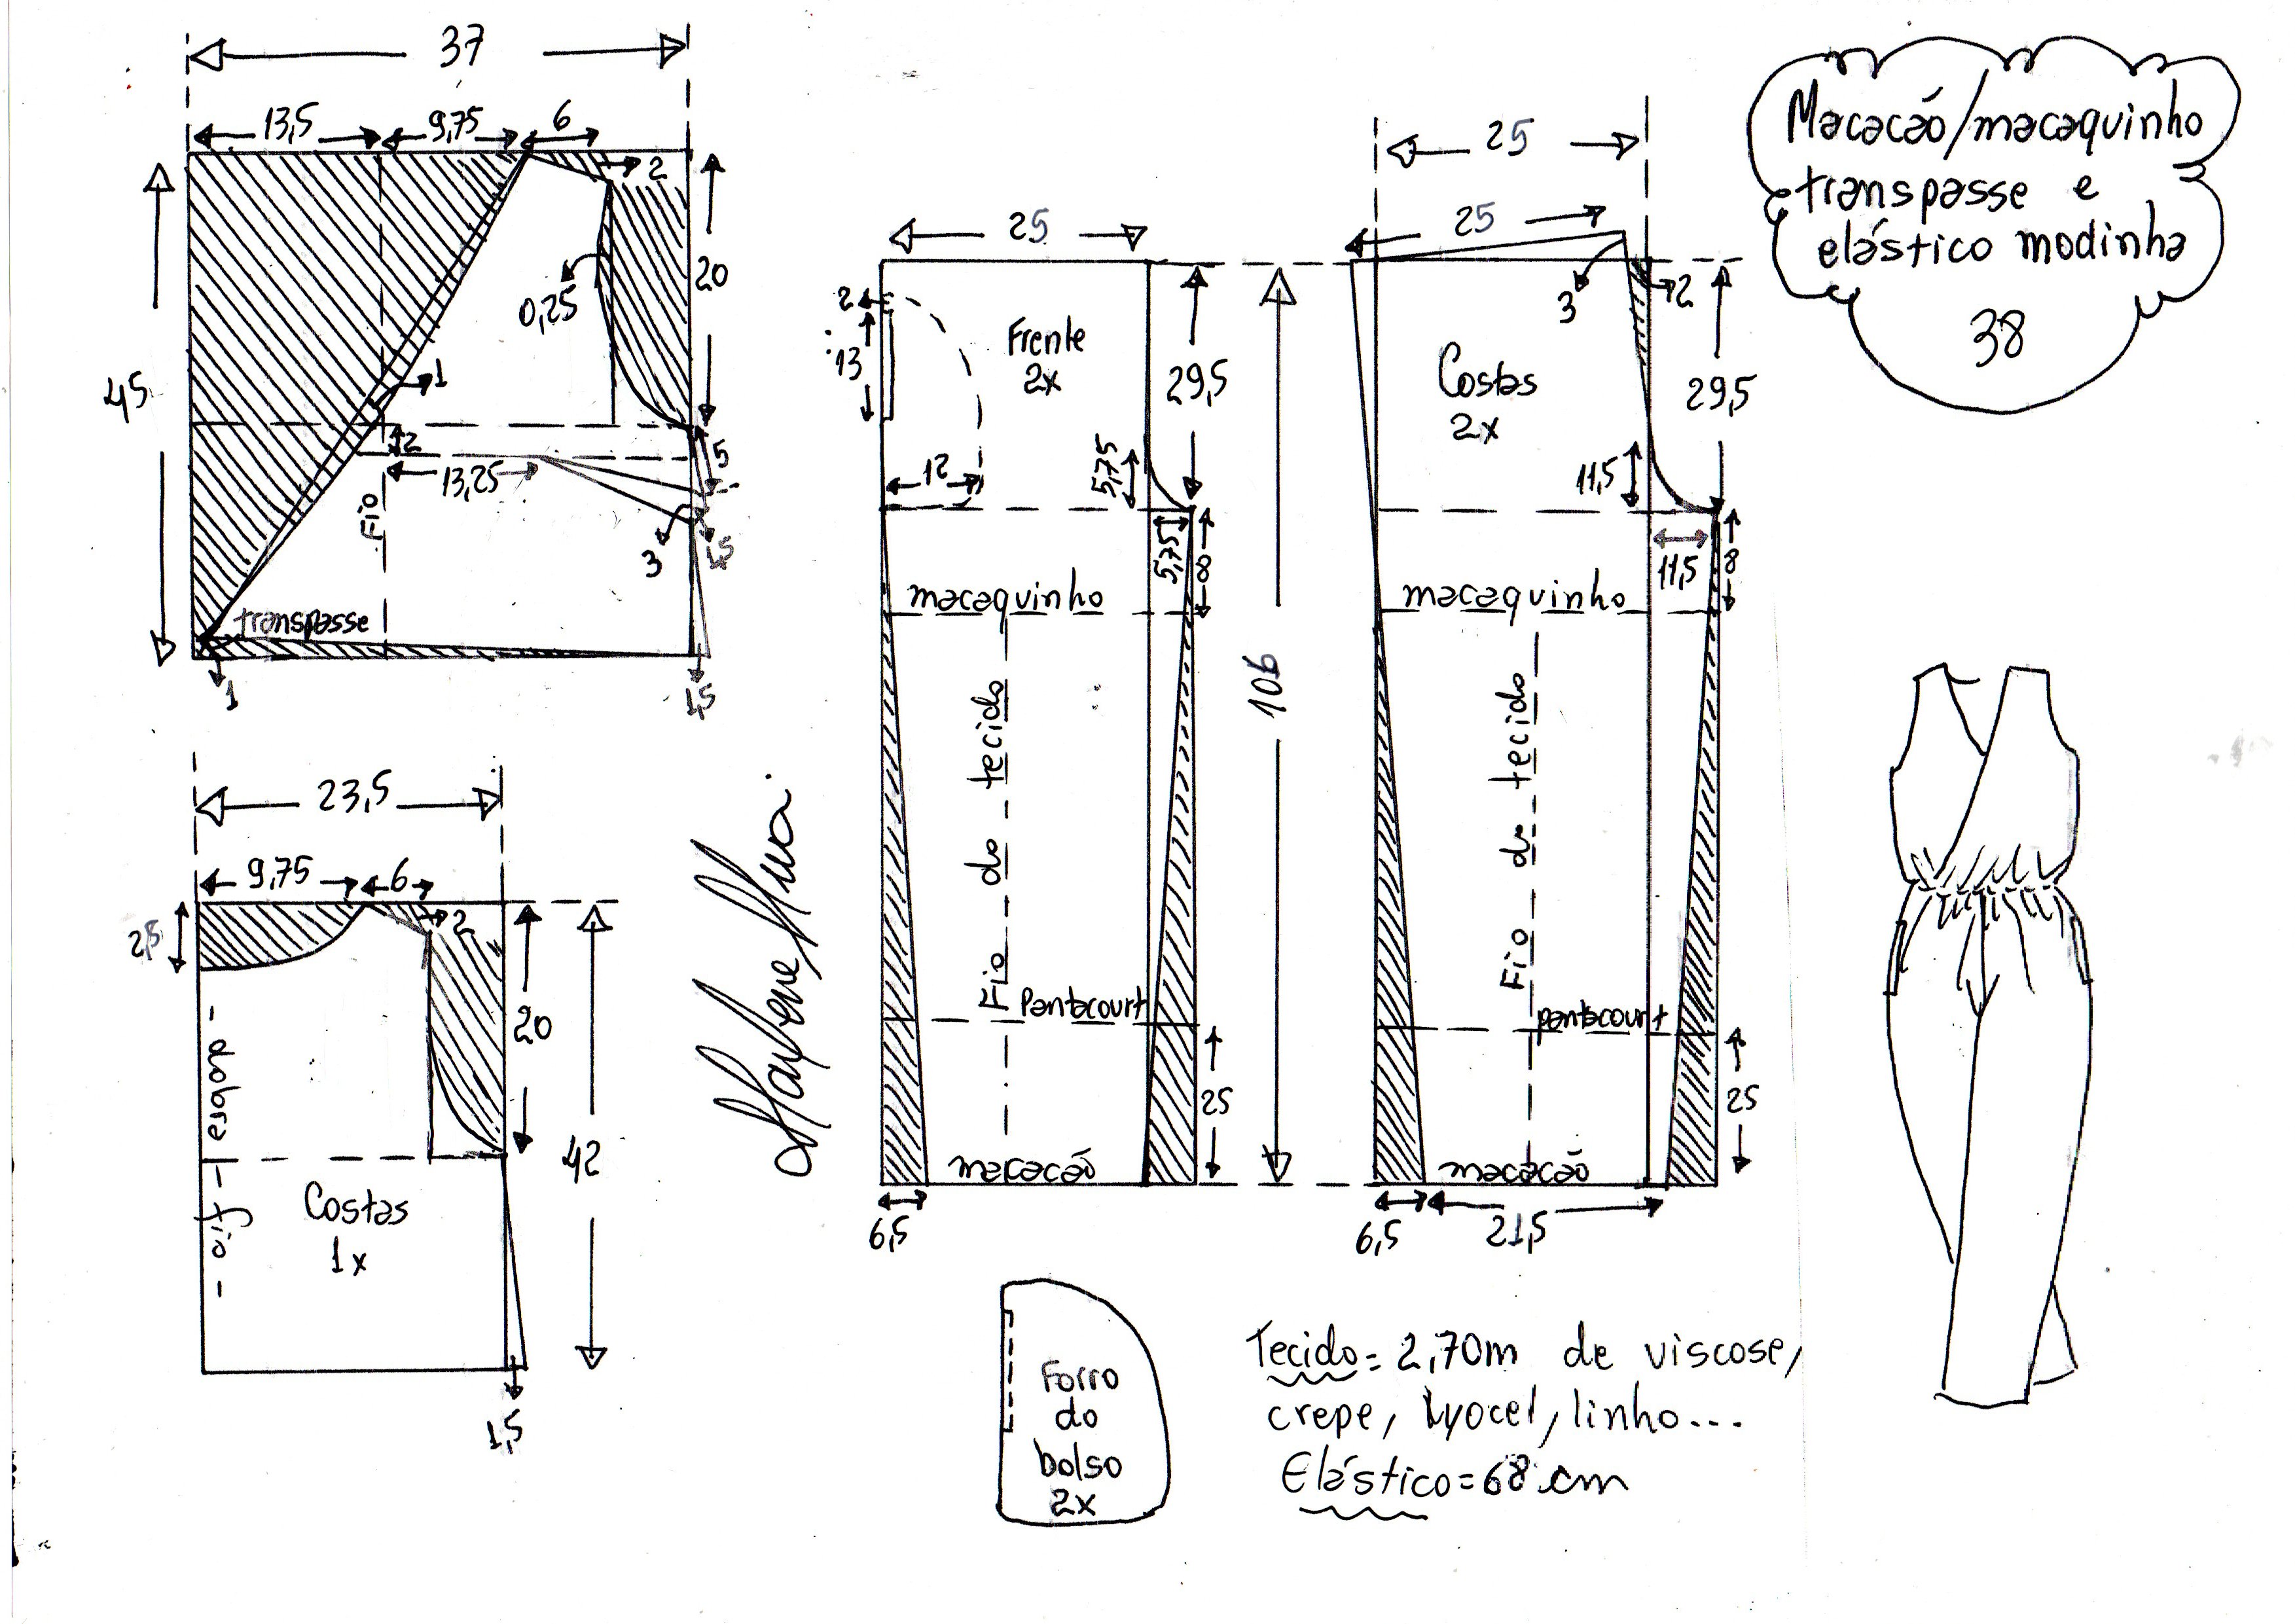 37
13,5
9,75
6
2
45
20
0,25
1
2
5
13,25
Fio
3
1,5
transpasse
1
1,5
23,5
9,75
6
2,5
2
20
42
- fio - esgap -
Costas
1x
1,5
25
2
13
Frente
2x
29,5
12
5,75
5,75
8
macaquinho
Fio do tecido
106
Pantacourt
25
macacão
6,5
25
25
3
2
Costas
2x
29,5
11,5
11,5
8
macaquinho
Fio de tecido
pantacourt
25
macacão
6,5
21,5
Macacão/macaquinho
transpasse e
elástico modinha
38
Forro
do
bolso
2x
Tecido= 2,70m de viscose,
crepe, lyocel, linho...
Elástico=68 cm